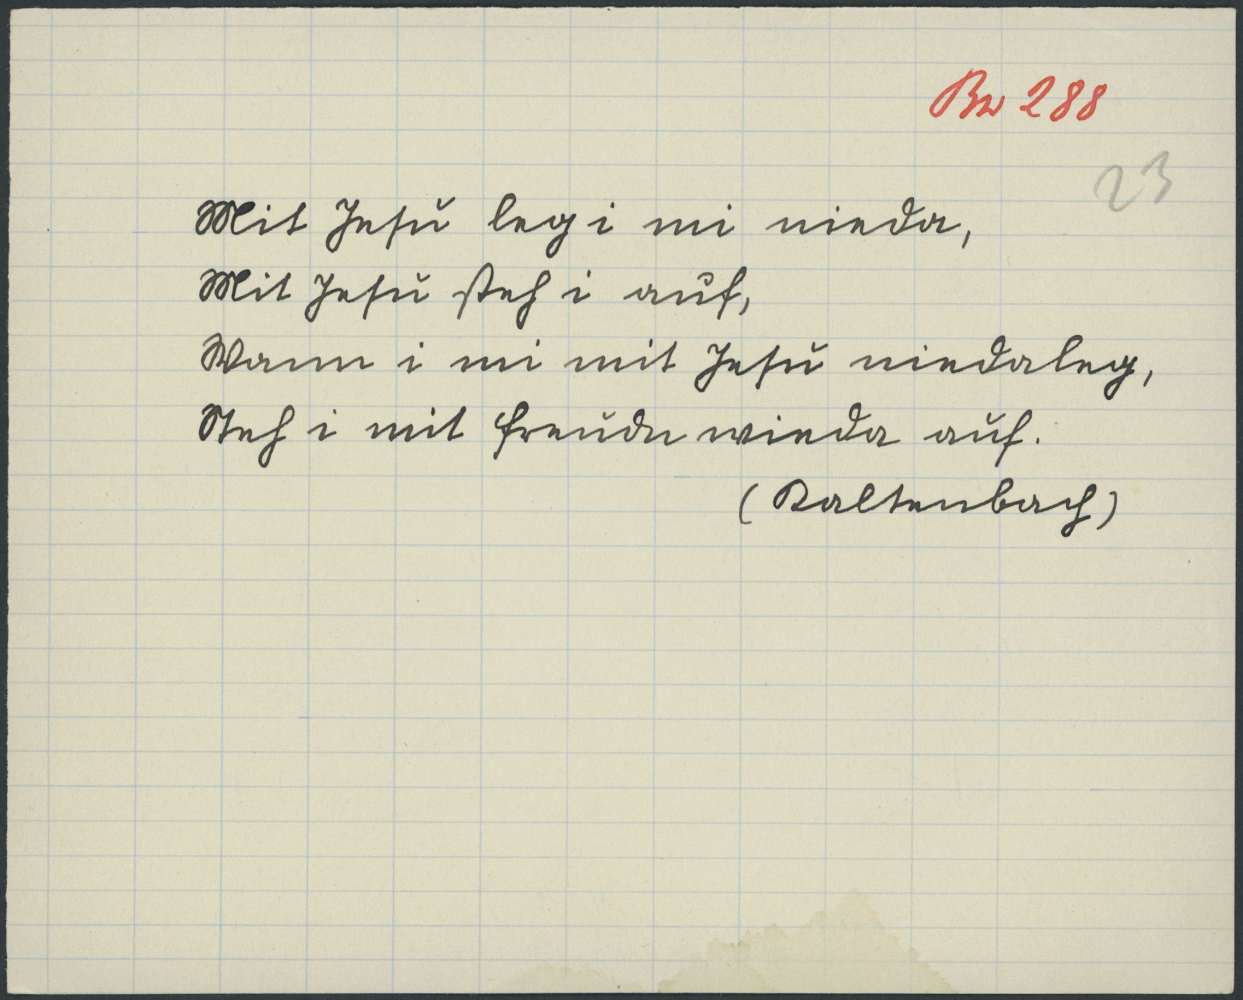 Bw 288
23
Mit Jesu leg i mi nieda,
Mit Jesu steh i auf,
Wann i mi mit Jesu niedaleg,
Steh i mit Freudn wieda auf.
(Kaltenbach)